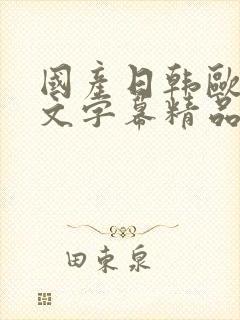 國產日韩歐
文字幕精品
田東泉